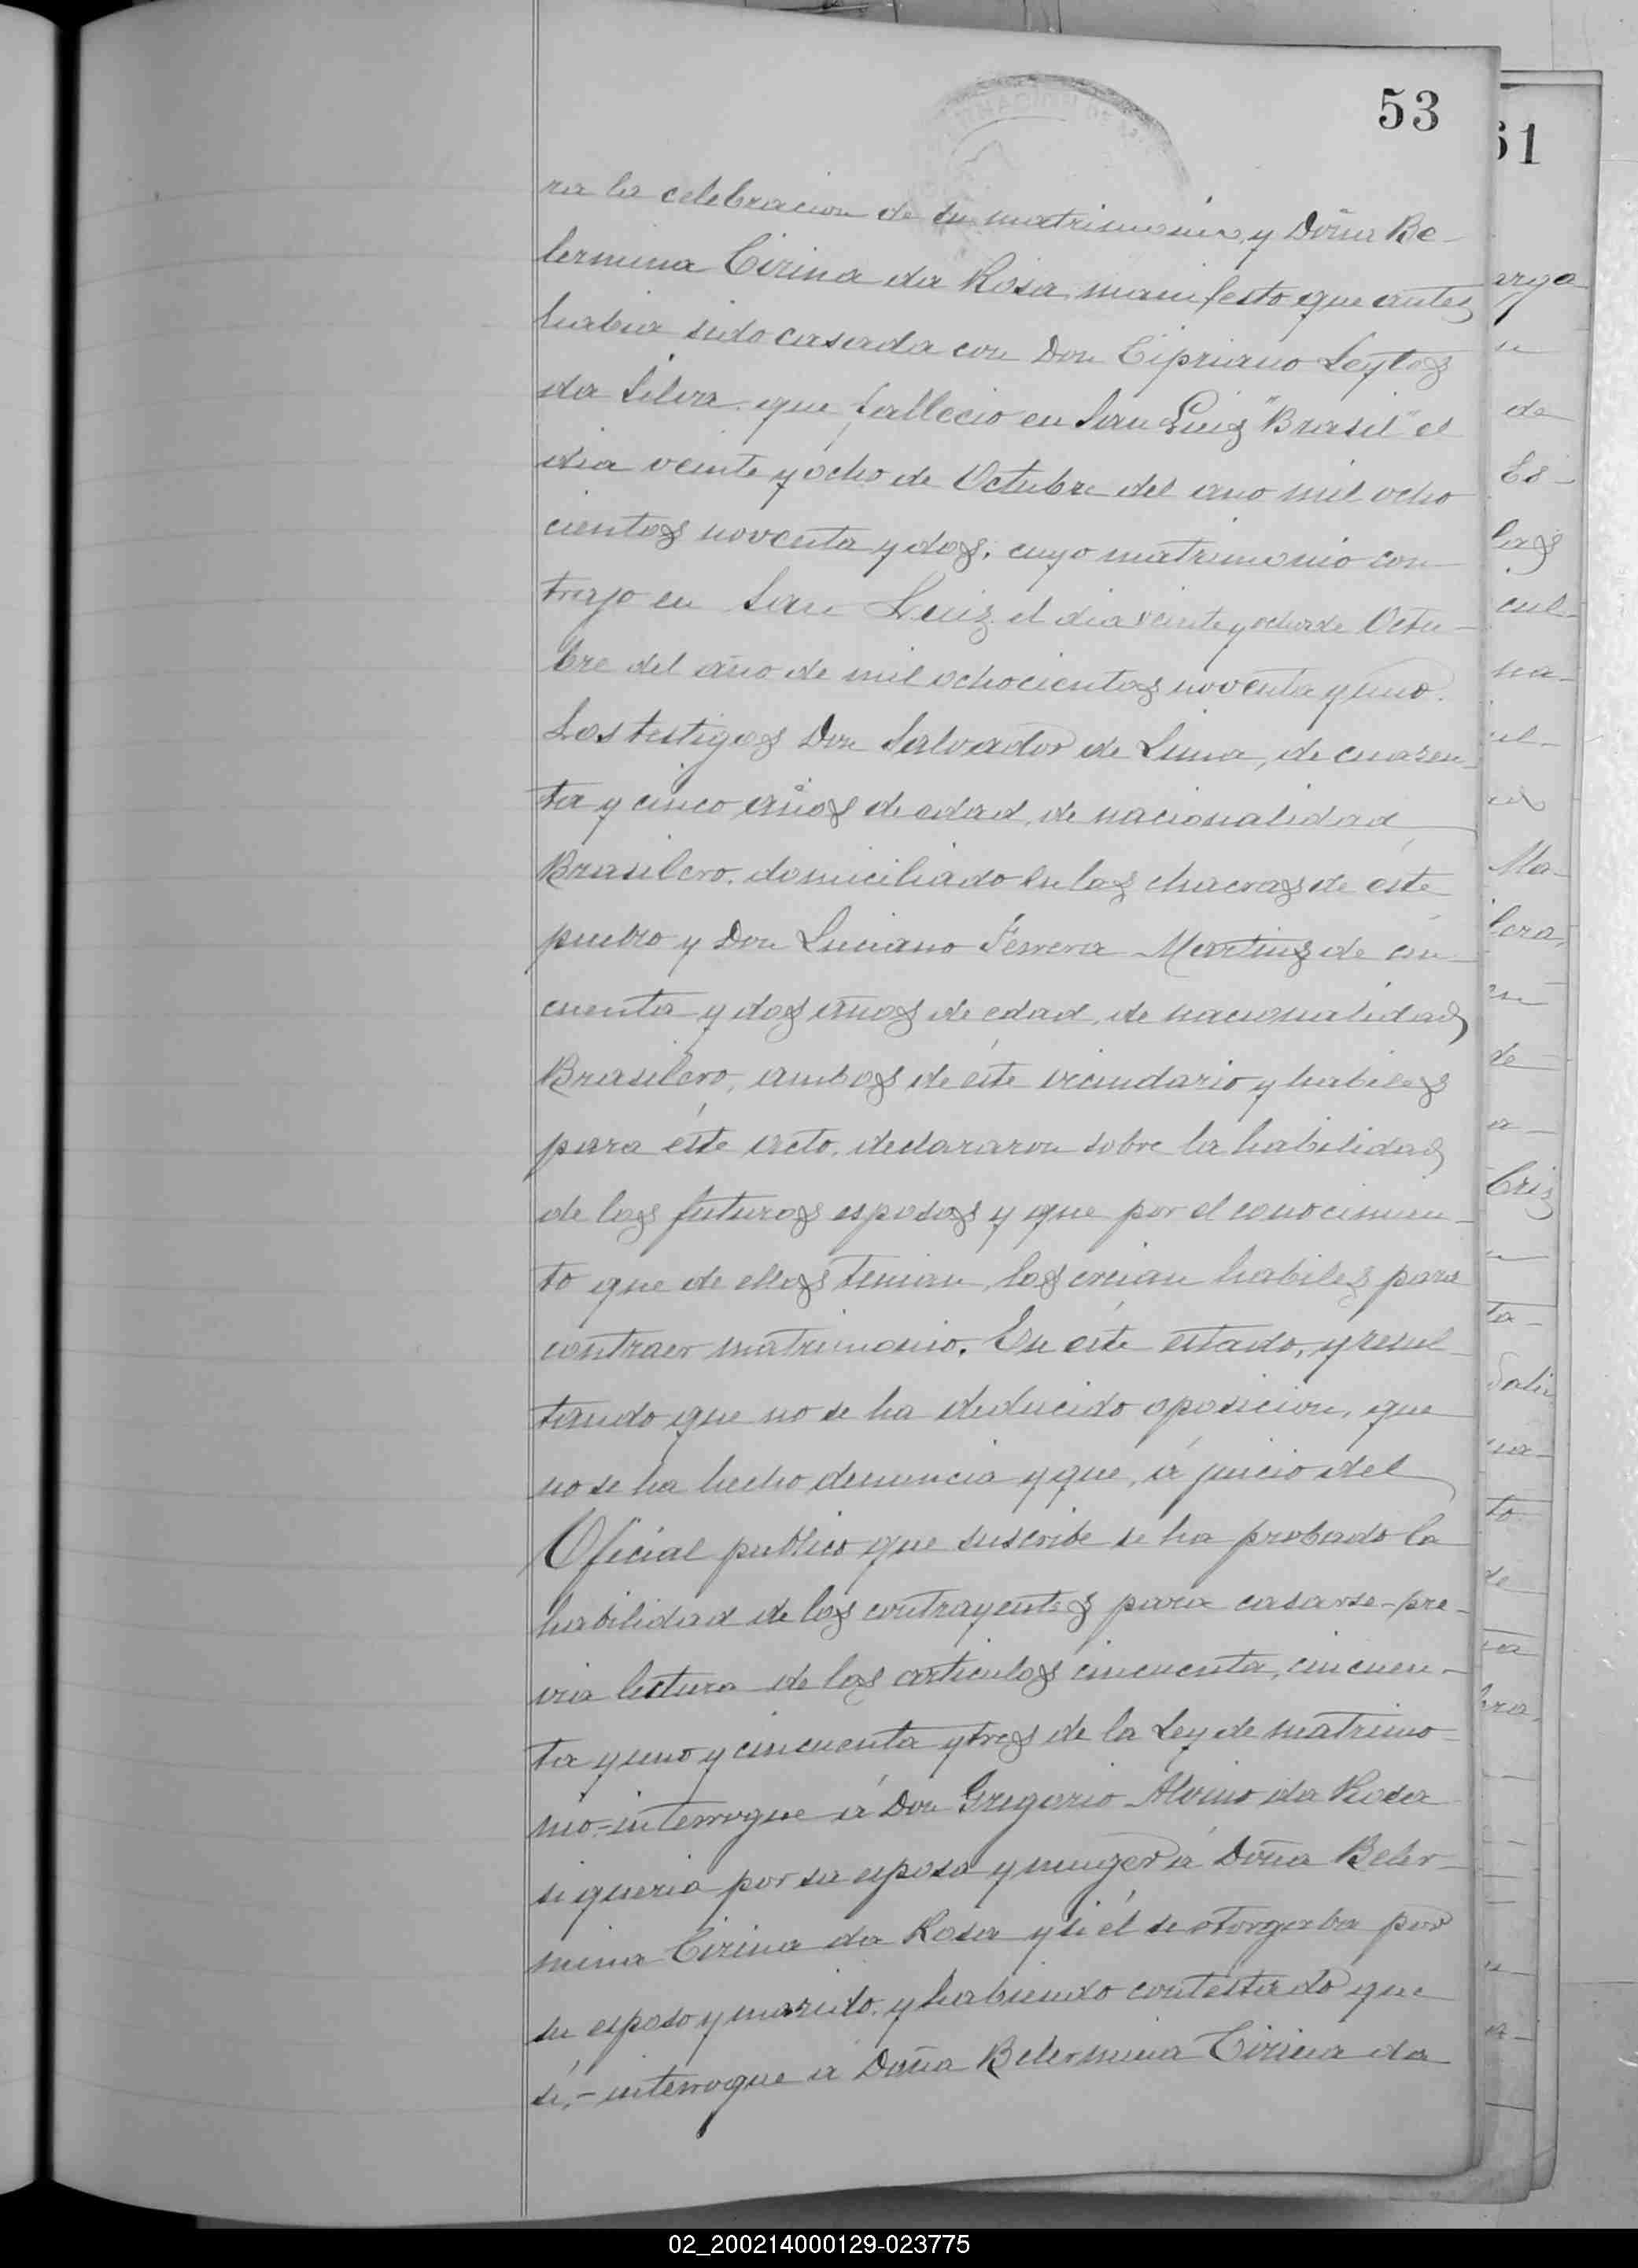 53
ra la celebracion de su matrimonio, y Doña Be-
lermina Cirina da Rosa, manifesto que antes
habia sido casada con Don Cipriano Leytos
da Silva, que fallecio en San Luiz "Brasil" el
dia veinte y ocho de Octubre del ano mil ocho
cientos noventa y dos; cuyo matrimonio con-
trajo en San Luiz el dia veinte y ocho de Octu-
bre del año de mil ochocientos noventa y uno.
Los testigos Don Salvador de Lima, de cuaren-
ta y cinco años de edad, de nacionalidad
Brasilero, domiciliado en las chacras de éste
pueblo y Don Luciano Ferrera Martins de cin-
cuenta y dos años de edad, de nacionalidad
Brasilero, ambos de éste vecindario y habiles
para éste acto, declararon sobre la habilidad
de los futuros esposos y que por el conocimien-
to que de ellos tenian, los creian habiles para
contraer matrimonio. En este estado, y resul-
tando que no se ha deducido oposicion, que
no se ha hecho denuncia y que, á juicio del
Oficial publico que suscribe se ha probado la
habilidad de los contrayentes para casarse-pre-
via lectura de los articulos cincuenta, cincuen-
ta y uno y cincuenta y tres de la Ley de matrimo-
nio-interrogue á Don Gregorio Alvino da Rosa
si queria por su esposa y muger á Doña Beler-
mina Cirina da Rosa y si él se otorgaba por
su esposo y marido, y habiendo contestado que
sí,-interrogue a Doña Belermina Cirina da
61
arga
de
Es-
las
cul-
na-
el-
Ma-
lera,
en
de
a-
Criz
ta-
na-
to
de
02_200214000129-023775